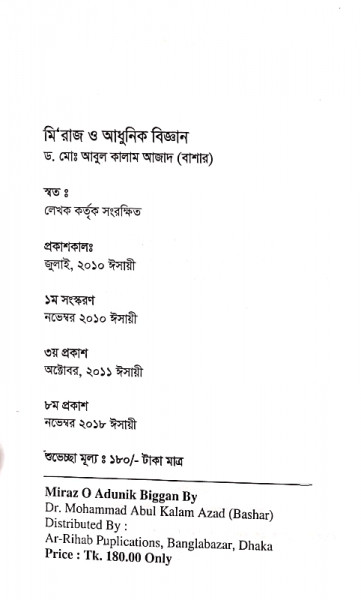 মি'রাজ ও আধুনিক বিজ্ঞান
ড. মোঃ আবুল কালাম আজাদ (বাশার)
স্বত ঃ
লেখক কর্তৃক সংরক্ষিত
প্রকাশকালঃ
জুলাই, ২০১০ ঈসায়ী
১ম সংস্করণ
নভেম্বর ২০১০ ঈসায়ী
৩য় প্রকাশ
অক্টোবর, ২০১১ ঈসায়ী
৮ম প্রকাশ
নভেম্বর ২০১৮ ঈসায়ী
শুভেচ্ছা মূল্য ঃ ১৮০/- টাকা মাত্র
Miraz O Adunik Biggan By
Dr. Mohammad Abul Kalam Azad (Bashar)
Distributed By :
Ar-Rihab Puplications, Banglabazar, Dhaka
Price : Tk. 180.00 Only